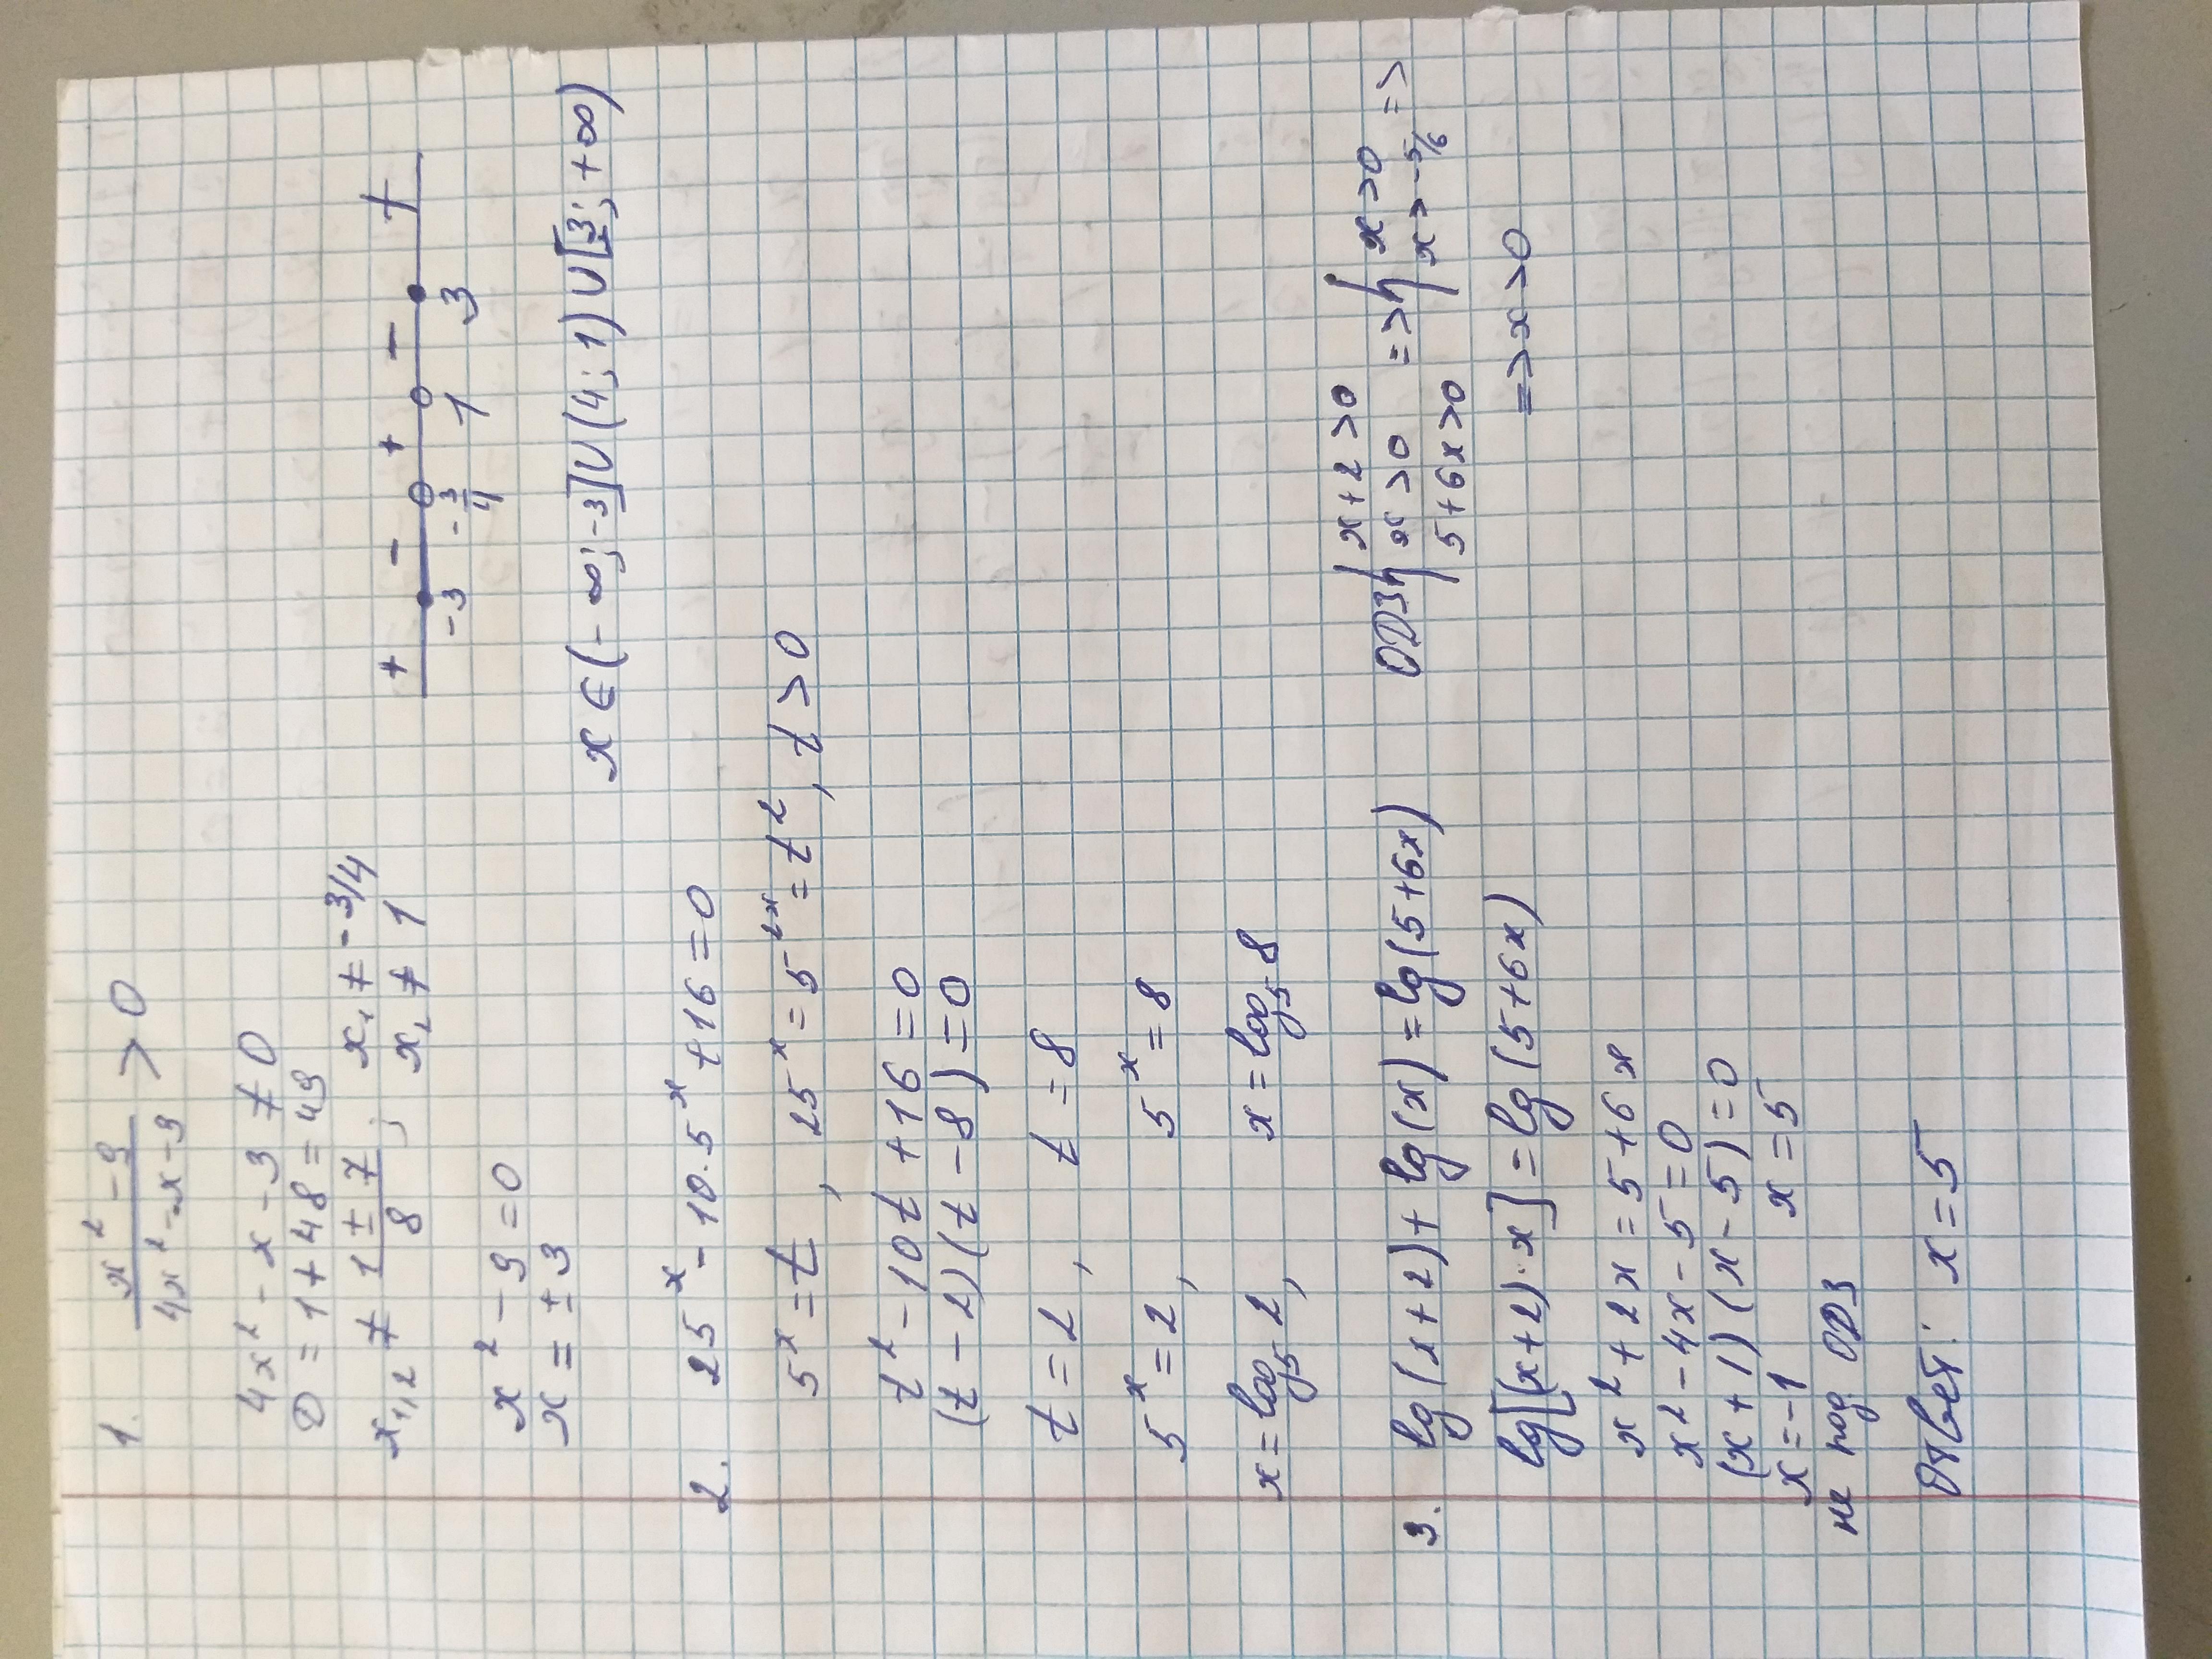 1. (x² - 9)/(4x² - x - 3) > 0
4x² - x - 3 ≠ 0
D = 1 + 48 = 49
x₁,₂ ≠ (1 ± 7)/8 ; x₁ ≠ -3/4
x₂ ≠ 1
+ - + - +
-3 -3/4 1 3
x² - 9 = 0
x = ± 3
x ∈ (-∞; -3] ∪ (4; 1) ∪ [3; +∞)
2. 25ˣ - 10·5ˣ + 16 = 0
5ˣ = t , 25ˣ = 5²ˣ = t² , t > 0
t² - 10t + 16 = 0
(t - 2)(t - 8) = 0
t = 2 , t = 8
5ˣ = 2 , 5ˣ = 8
x = log₅ 2 , x = log₅ 8
3. lg(x+2) + lg(x) = lg(5+6x) ОДЗ { x+2>0 x>0 5+6x>0 => { x>0 x>-5/6 =>
lg[(x+2)·x] = lg(5+6x) => x>0
x² + 2x = 5 + 6x
x² - 4x - 5 = 0
(x+1)(x-5) = 0
x = -1 x = 5
не под. ОДЗ
Ответ: x = 5